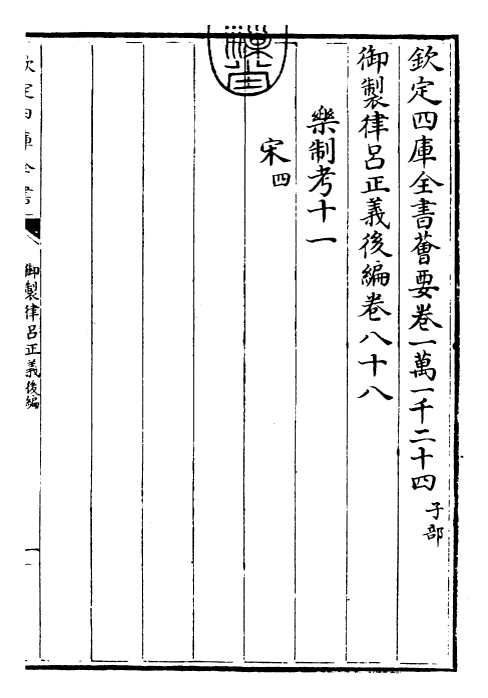 欽定四庫全書薈要卷一萬一千二十四 子部
御製律呂正義後編卷八十八
樂制考十一
宋四
欽定四庫全書
御製律呂正義後編
一